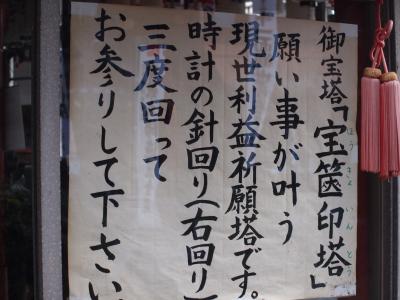 御宝塔「宝篋印塔」
ほうきょくいんとう
願い事が叶う
現世利益祈願塔です。
時計の針回り(右回り)
三度回って
お参りして下さい